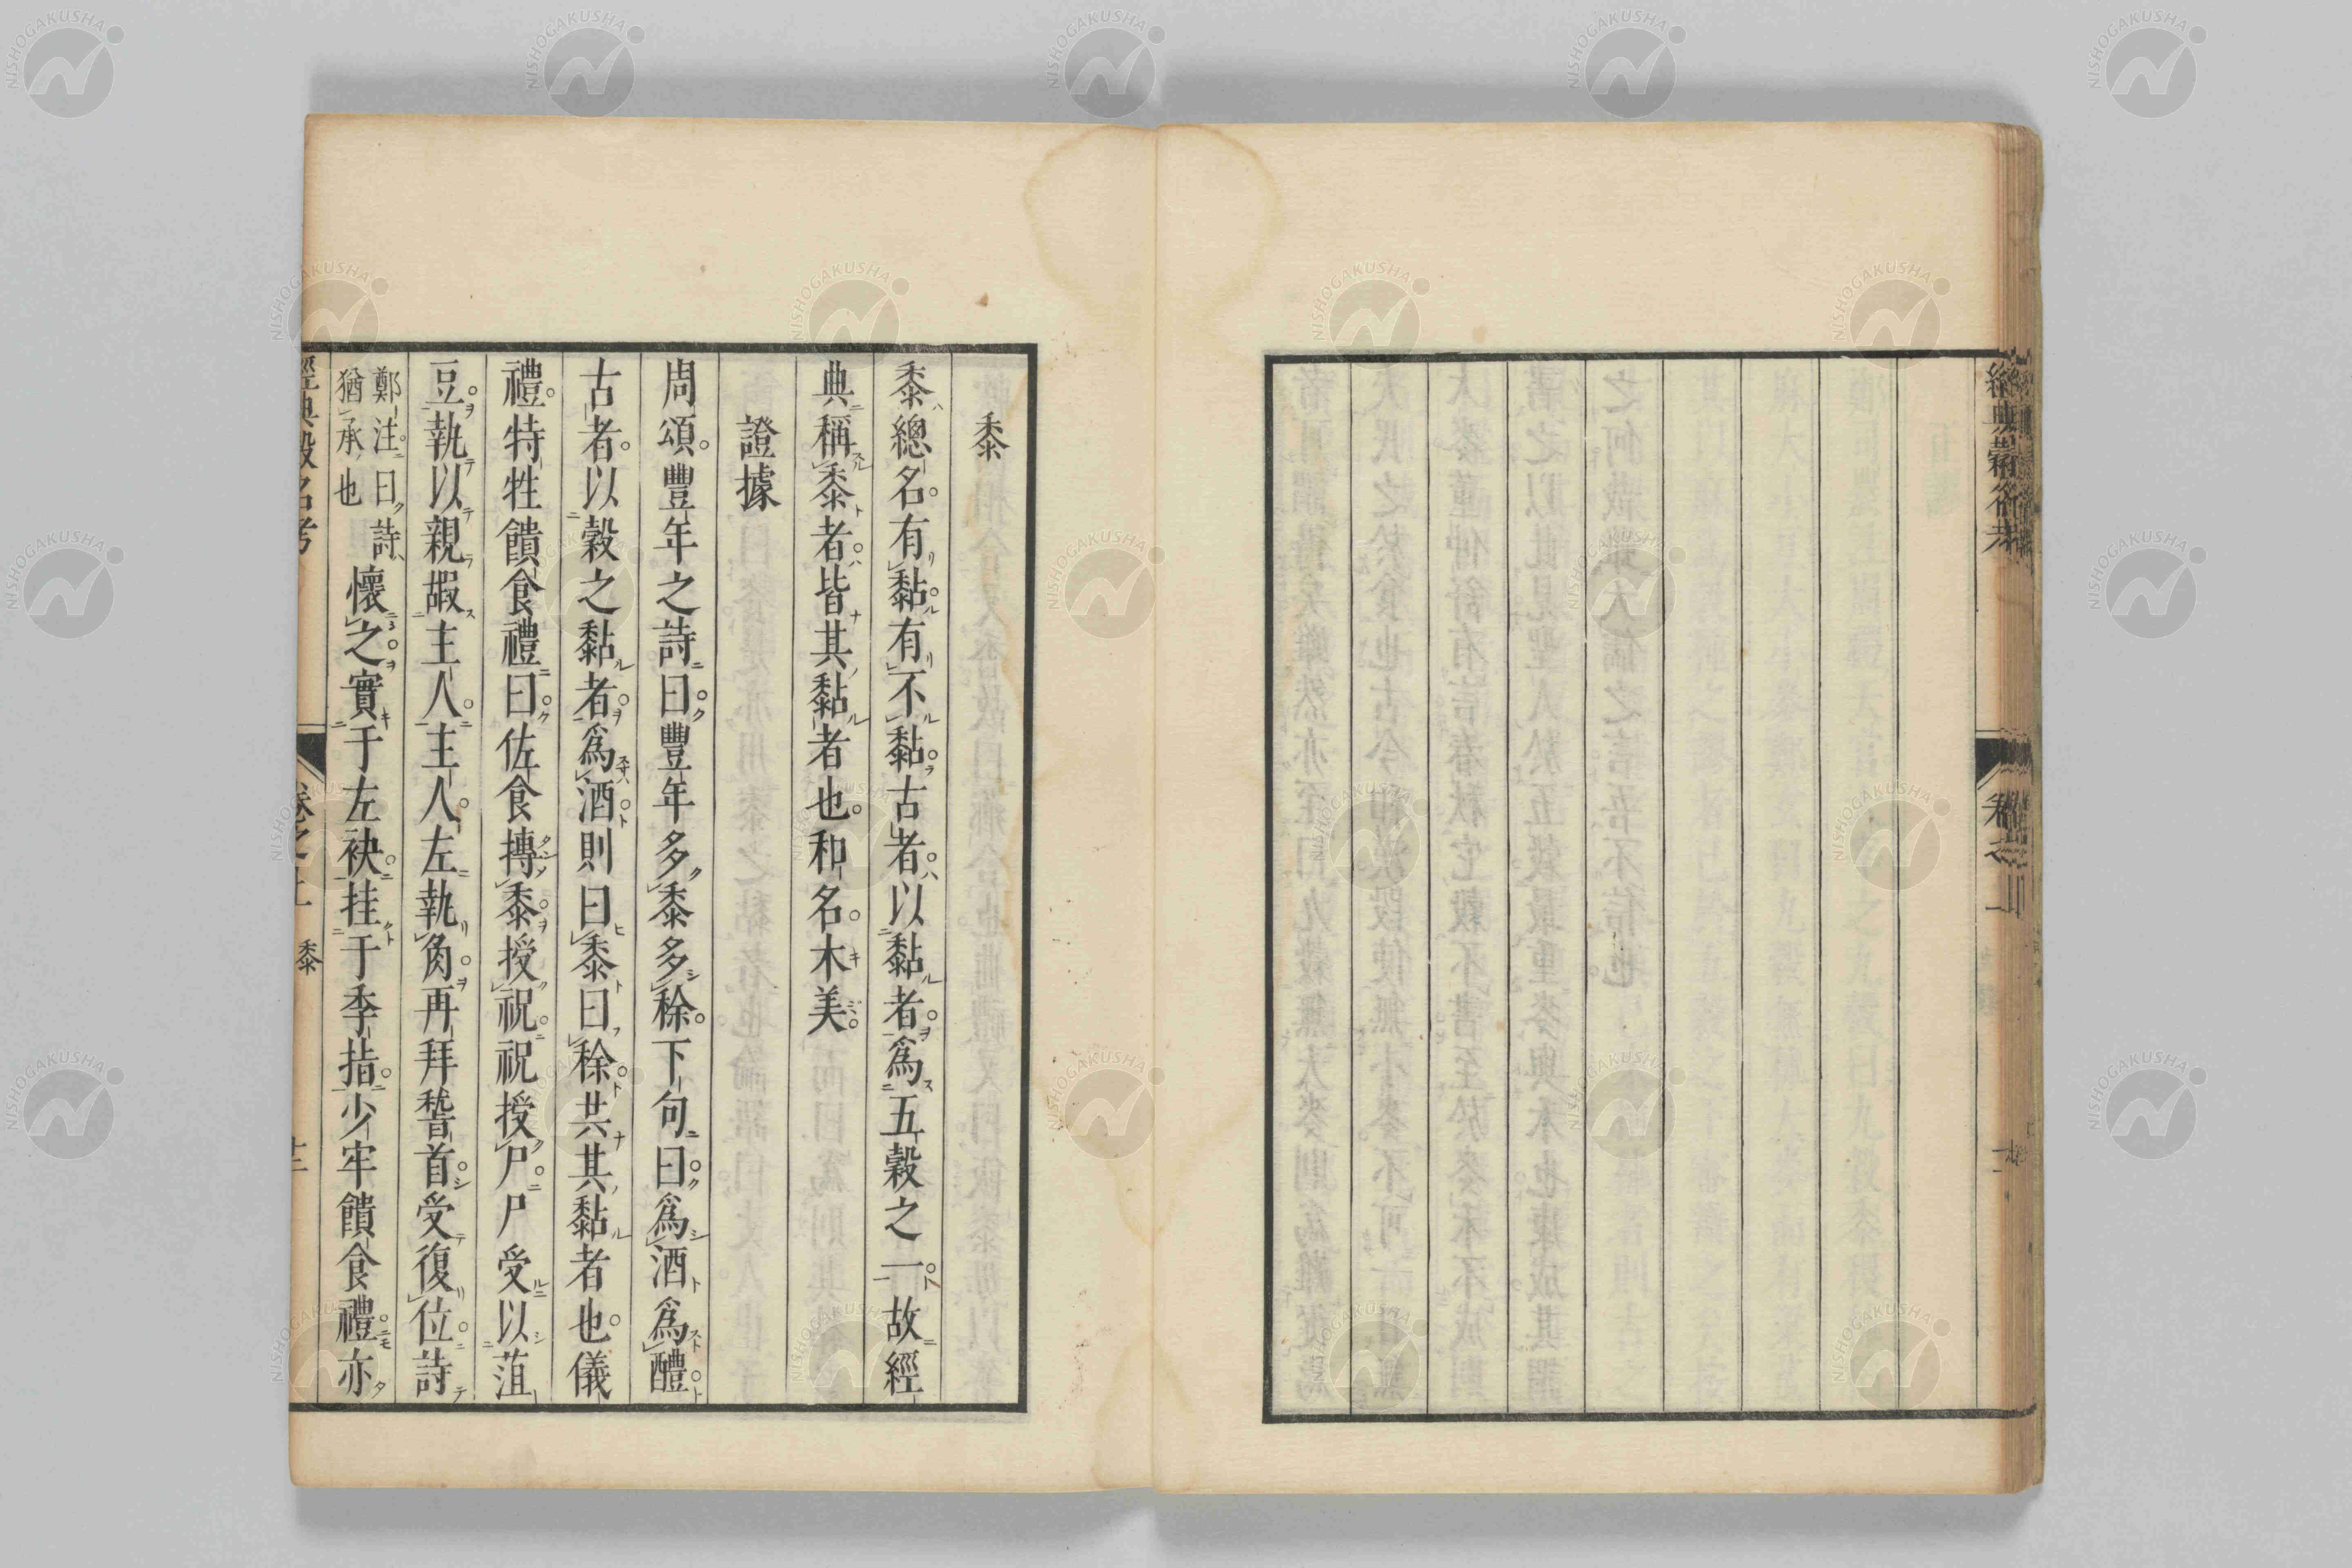 經典穀名考
卷之
黍
黍總名有黏有不黏古者以黏者爲五穀之一故經
典稱黍者皆其黏者也和名木美
證據
周頌豐年之詩曰豐年多黍多稌下句曰爲酒爲醴
古者以穀之黏者爲酒則曰黍曰稌共其黏者也儀
禮特牲饋食禮曰佐食摶黍授祝祝授尸尸受以菹
豆執以親嘏主人主人左執角再拜稽首受復位詩
鄭注曰詩
猶承也
懷之實于左袂挂于季指少牢饋食禮亦
經典穀名考
卷之上
黍
十二
NISHOGAKUSHA